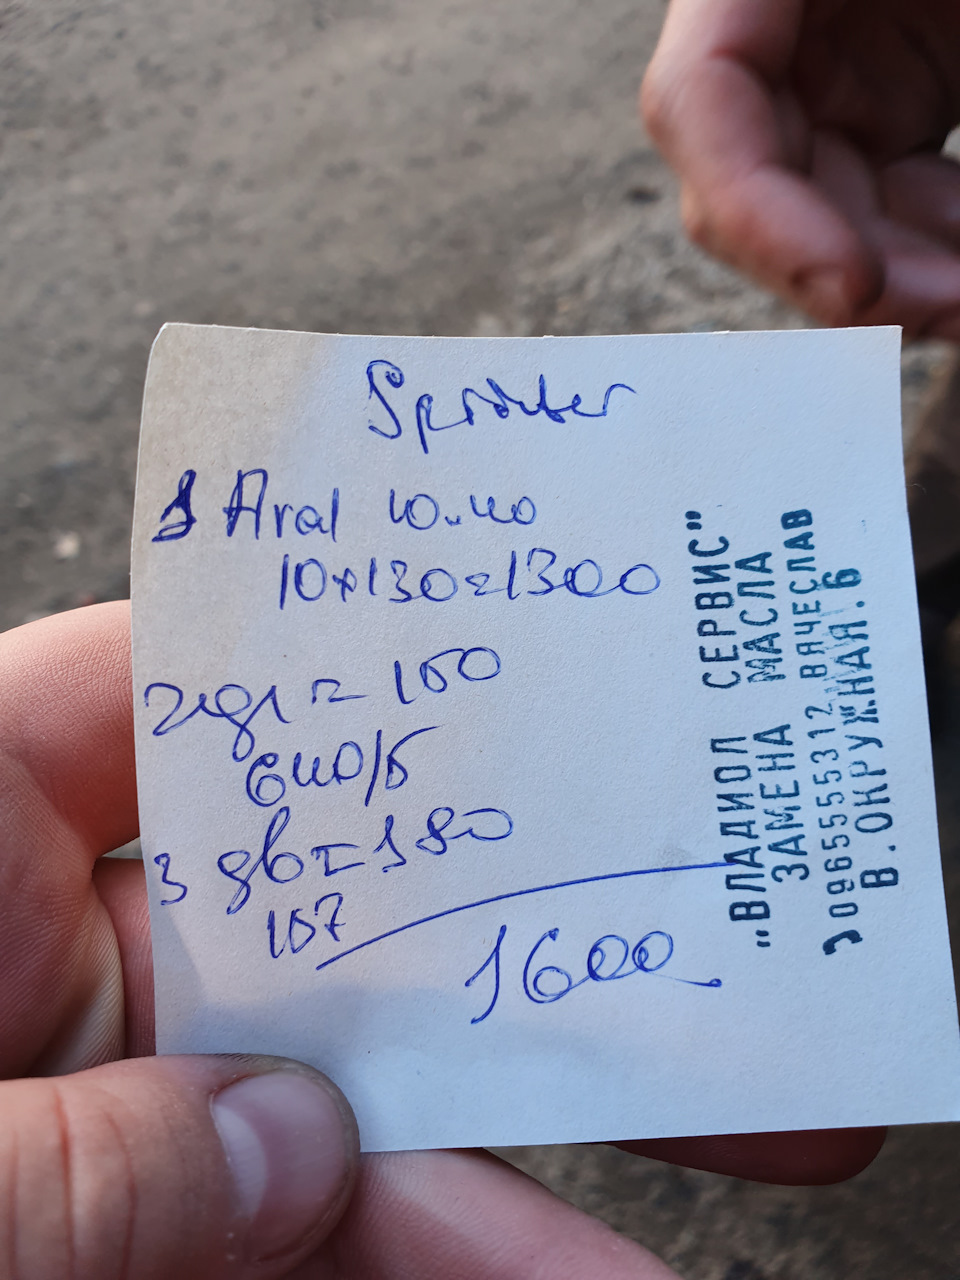 Sprinter
1 Aral 10.40
10x130=1300
= 160
640/5
3 = 180
107
1600
„ВЛАДИОЛ СЕРВИС"
ЗАМЕНА МАСЛА
0965555312 ВЯЧЕСЛАВ
В.ОКРУЖНАЯ.6